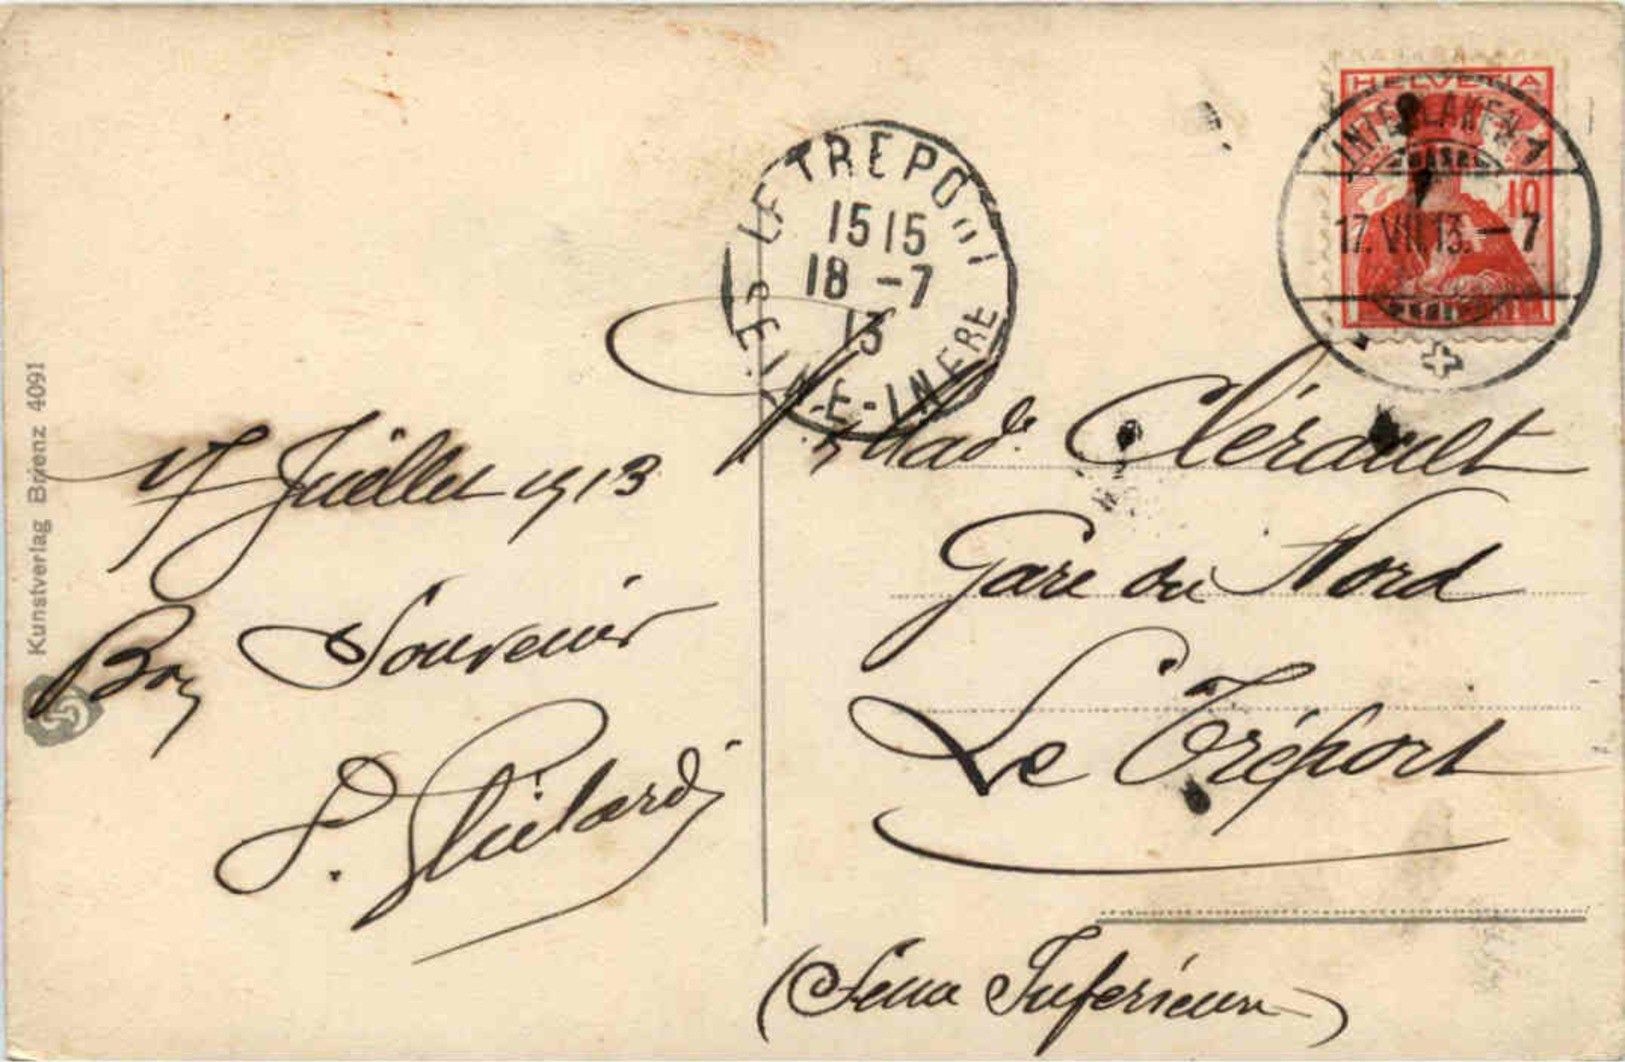 HELVETIA
10
INTERLAKEN 1
17. VII. 13. - 7
LE TREPORT
1515
18 -7
13
SEINE-INFRE
17 Juillet 1913
Bon Souvenir
Mad. Clérault
Gare du Nord
Le Tréport
(Seine Inférieure)
Kunstverlag Brienz 4091